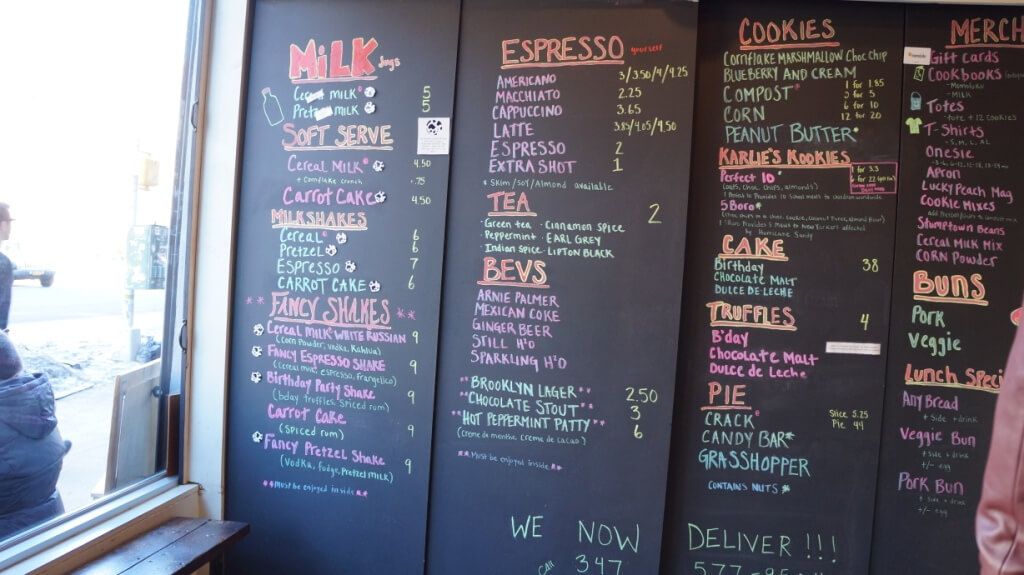 MILK
Cereal MILK 5
Pretzel MILK 5
SOFT SERVE
Cereal Milk 4.50
+ Cornflake crunch .75
Carrot Cake 4.50
MILKSHAKES
Cereal 6
Pretzel 6
Espresso 7
CARROT CAKE 6
**FANCY SHAKES**
Cereal Milk WHITE RUSSIAN 9
(Corn Powder, vodka, Kahlua)
Fancy ESPRESSO SHAKE 9
(cereal milk, espresso, frangelico)
Birthday Party Shake 9
(bday truffles, Spiced rum)
Carrot Cake 9
(Spiced rum)
Fancy Pretzel Shake 9
(Vodka, fudge, Pretzel milk)
**Must be enjoyed inside**
ESPRESSO yourself
AMERICANO 3/3.50/4/4.25
MACCHIATO 2.25
CAPPUCCINO 3.65
LATTE 3.85/4.05/4.50
ESPRESSO 2
EXTRA SHOT 1
* Skim/Soy/Almond available
TEA 2
Green tea · Cinnamon Spice
Peppermint · EARL GREY
Indian Spice · LIPTON BLACK
BEVS
ARNIE PALMER
MEXICAN COKE
GINGER BEER
STILL H²O
SPARKLING H²O
**BROOKLYN LAGER** 2.50
**CHOCOLATE STOUT** 3
**HOT PEPPERMINT PATTY** 6
(Creme de menthe, creme de cacao)
**Must be enjoyed inside**
WE NOW
Call 347
COOKIES
Cornflake MARSHMALLOW Choc Chip
BLUEBERRY AND CREAM
COMPOST* 1 for 1.85
CORN 6 for 10
PEANUT BUTTER* 12 for 20
KARLIE'S KOOKIES
Perfect 10*
(oats, choc chips, almonds)
5 Boro*
Hurricane Sandy
CAKE
Birthday 38
CHOCOLATE MALT
DULCE DE LECHE
TRUFFLES 4
B'day
Chocolate Malt
Dulce de Leche
PIE
CRACK Slice 5.25
Pie 44
CANDY BAR*
GRASSHOPPER
CONTAINS NUTS *
DELIVER!!!
577-95
MERCH
Gift Cards
Cookbooks
- Momofuku
- Milk
Totes
- tote + 12 Cookies
T-Shirts
- S, M, L, XL
Onesie
Apron
Lucky Peach Mag
Cookie Mixes
Stumptown Beans
Cereal Milk Mix
CORN Powder
BUNS
Pork
Veggie
Lunch Speci
Any Bread
+ Side + drink
Veggie Bun
+ Side + drink
+/- egg
Pork Bun
+ Side + drink
+/- egg